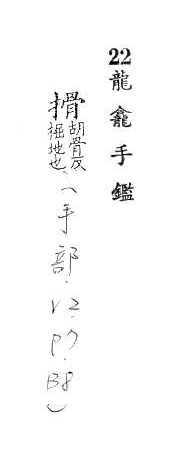 22龍龕手鑑
搰胡骨反
掘地也（手部.V2.P7.B8）